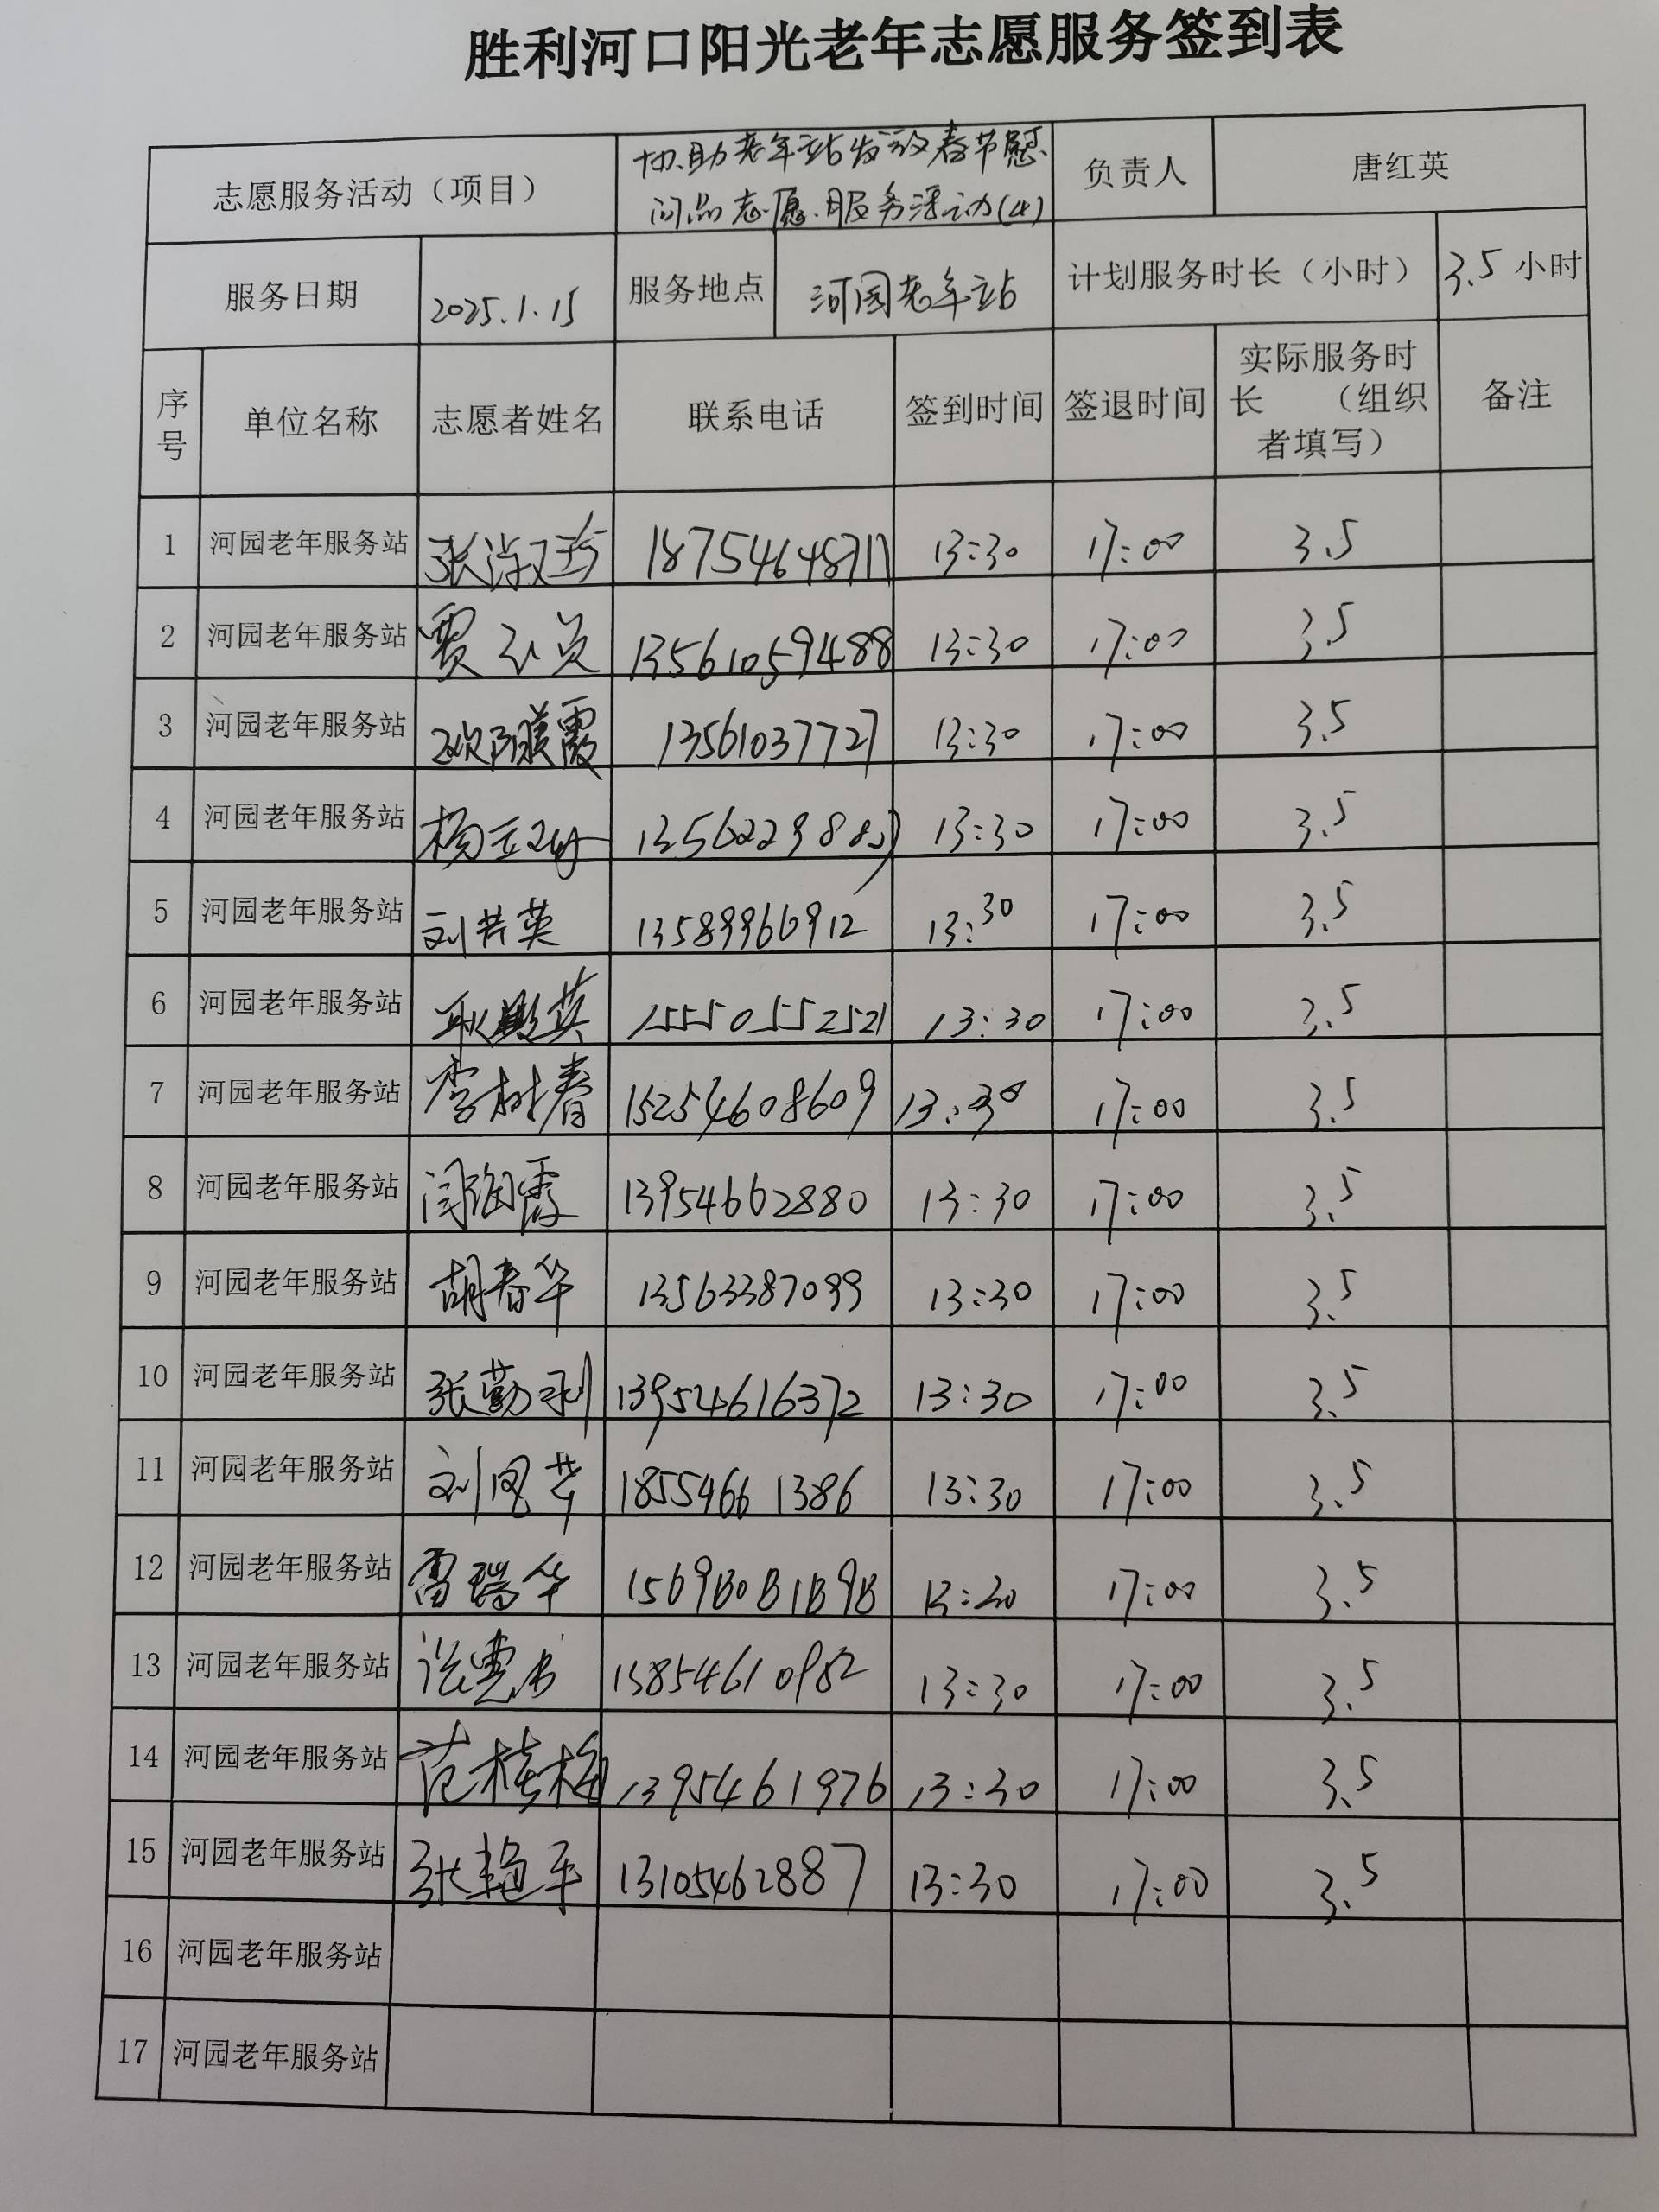 胜利河口阳光老年志愿服务签到表
志愿服务活动（项目） 协助老年站发放春节慰问品志愿服务活动(4) 负责人 唐红英
服务日期 2025.1.15 服务地点 河园老年站 计划服务时长（小时） 3.5 小时
序号 单位名称 志愿者姓名 联系电话 签到时间 签退时间 实际服务时长 （组织者填写） 备注
1 河园老年服务站 张淑珍 18754648711 13:30 17:00 3.5
2 河园老年服务站 13561059488 13:30 17:00 3.5
3 河园老年服务站 13561037727 13:30 17:00 3.5
4 河园老年服务站 13:30 17:00 3.5
5 河园老年服务站 刘芸英 13589966912 13:30 17:00 3.5
6 河园老年服务站 15550552521 13:30 17:00 3.5
7 河园老年服务站 李树春 15254608609 13:30 17:00 3.5
8 河园老年服务站 闫海霞 13954662880 13:30 17:00 3.5
9 河园老年服务站 胡春华 13563387099 13:30 17:00 3.5
10 河园老年服务站 张勤利 13954616372 13:30 17:00 3.5
11 河园老年服务站 刘凤芝 18554661386 13:30 17:00 3.5
12 河园老年服务站 雷瑞华 13:30 17:00 3.5
13 河园老年服务站 13854610982 13:30 17:00 3.5
14 河园老年服务站 范桂梅 1395461976 13:30 17:00 3.5
15 河园老年服务站 张艳平 13105462887 13:30 17:00 3.5
16 河园老年服务站
17 河园老年服务站